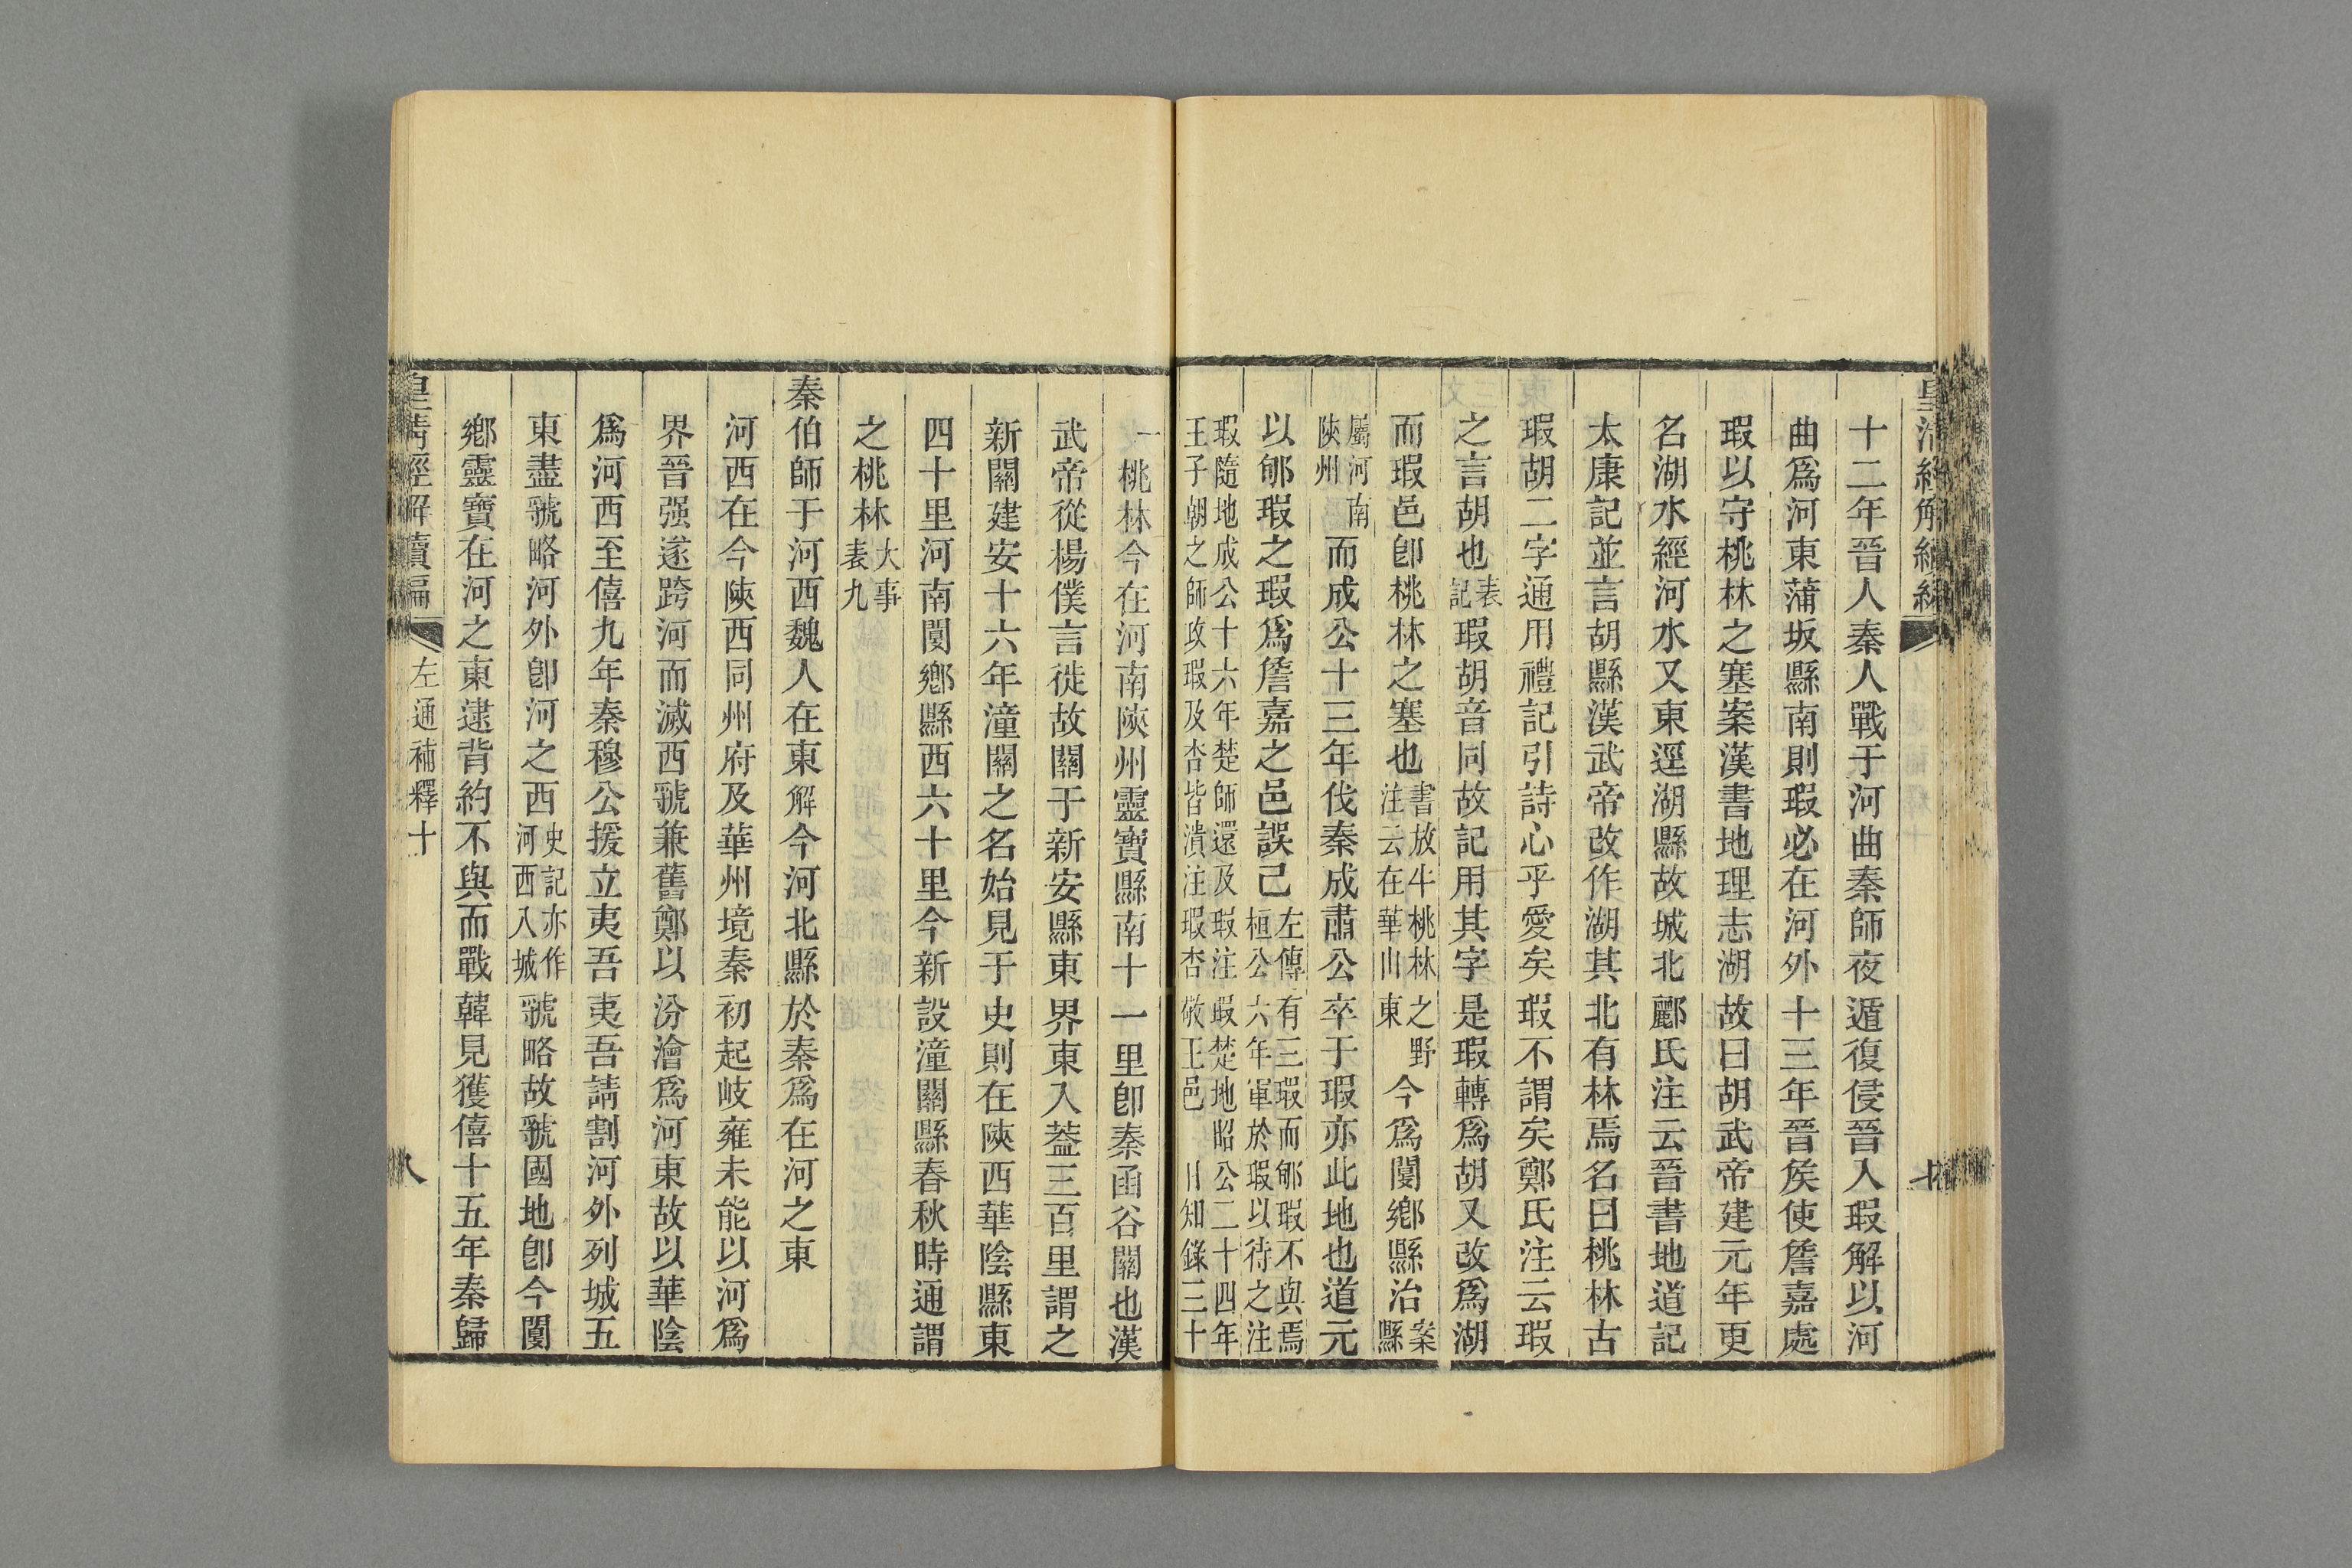 皇清經解續編
十二年晉人秦人戰于河曲秦師夜遁復侵晉入瑕解以河
曲爲河東蒲坂縣南則瑕必在河外十三年晉矦使詹嘉處
瑕以守桃林之塞案漢書地理志湖故曰胡武帝建元年更
名湖水經河水又東逕湖縣故城北酈氏注云晉書地道記
太康記並言胡縣漢武帝改作湖其北有林焉名曰桃林古
瑕胡二字通用禮記引詩心乎愛矣瑕不謂矣鄭氏注云瑕
之言胡也表記瑕胡音同故記用其字是瑕轉爲胡又改爲湖
而瑕邑卽桃林之塞也書放牛桃林之野注云在華山東今爲閿鄉縣治案縣
屬河南陝州而成公十三年伐秦成肅公卒于瑕亦此地也道元
以郇瑕之瑕爲詹嘉之邑誤己左傳有三瑕而郇瑕不與焉桓公六年軍於瑕以待之注
瑕隨地成公十六年楚師還及瑕注瑕楚地昭公二十四年王子朝之師攻瑕及杏皆潰注瑕杏敬王邑日知錄三十
一桃林今在河南陝州靈寶縣南十一里卽秦函谷關也漢
武帝從楊僕言徙故關于新安縣東界東入葢三百里謂之
新關建安十六年潼關之名始見于史則在陝西華陰縣東
四十里河南閿鄉縣西六十里今新設潼關縣春秋時通謂
之桃林大事表九
秦伯師于河西魏人在東解今河北縣於秦爲在河之東
河西在今陝西同州府及華州境秦初起岐雍未能以河爲
界晉强遂跨河而滅西虢兼舊鄭以汾澮爲河東故以華陰
爲河西至僖九年秦穆公援立夷吾夷吾請割河外列城五
東盡虢略河外卽河之西史記亦作河西入城虢略故虢國地卽今閿
鄉靈寶在河之東逮背約不與而戰韓見獲僖十五年秦歸
皇清經解續編 左通補釋十 八